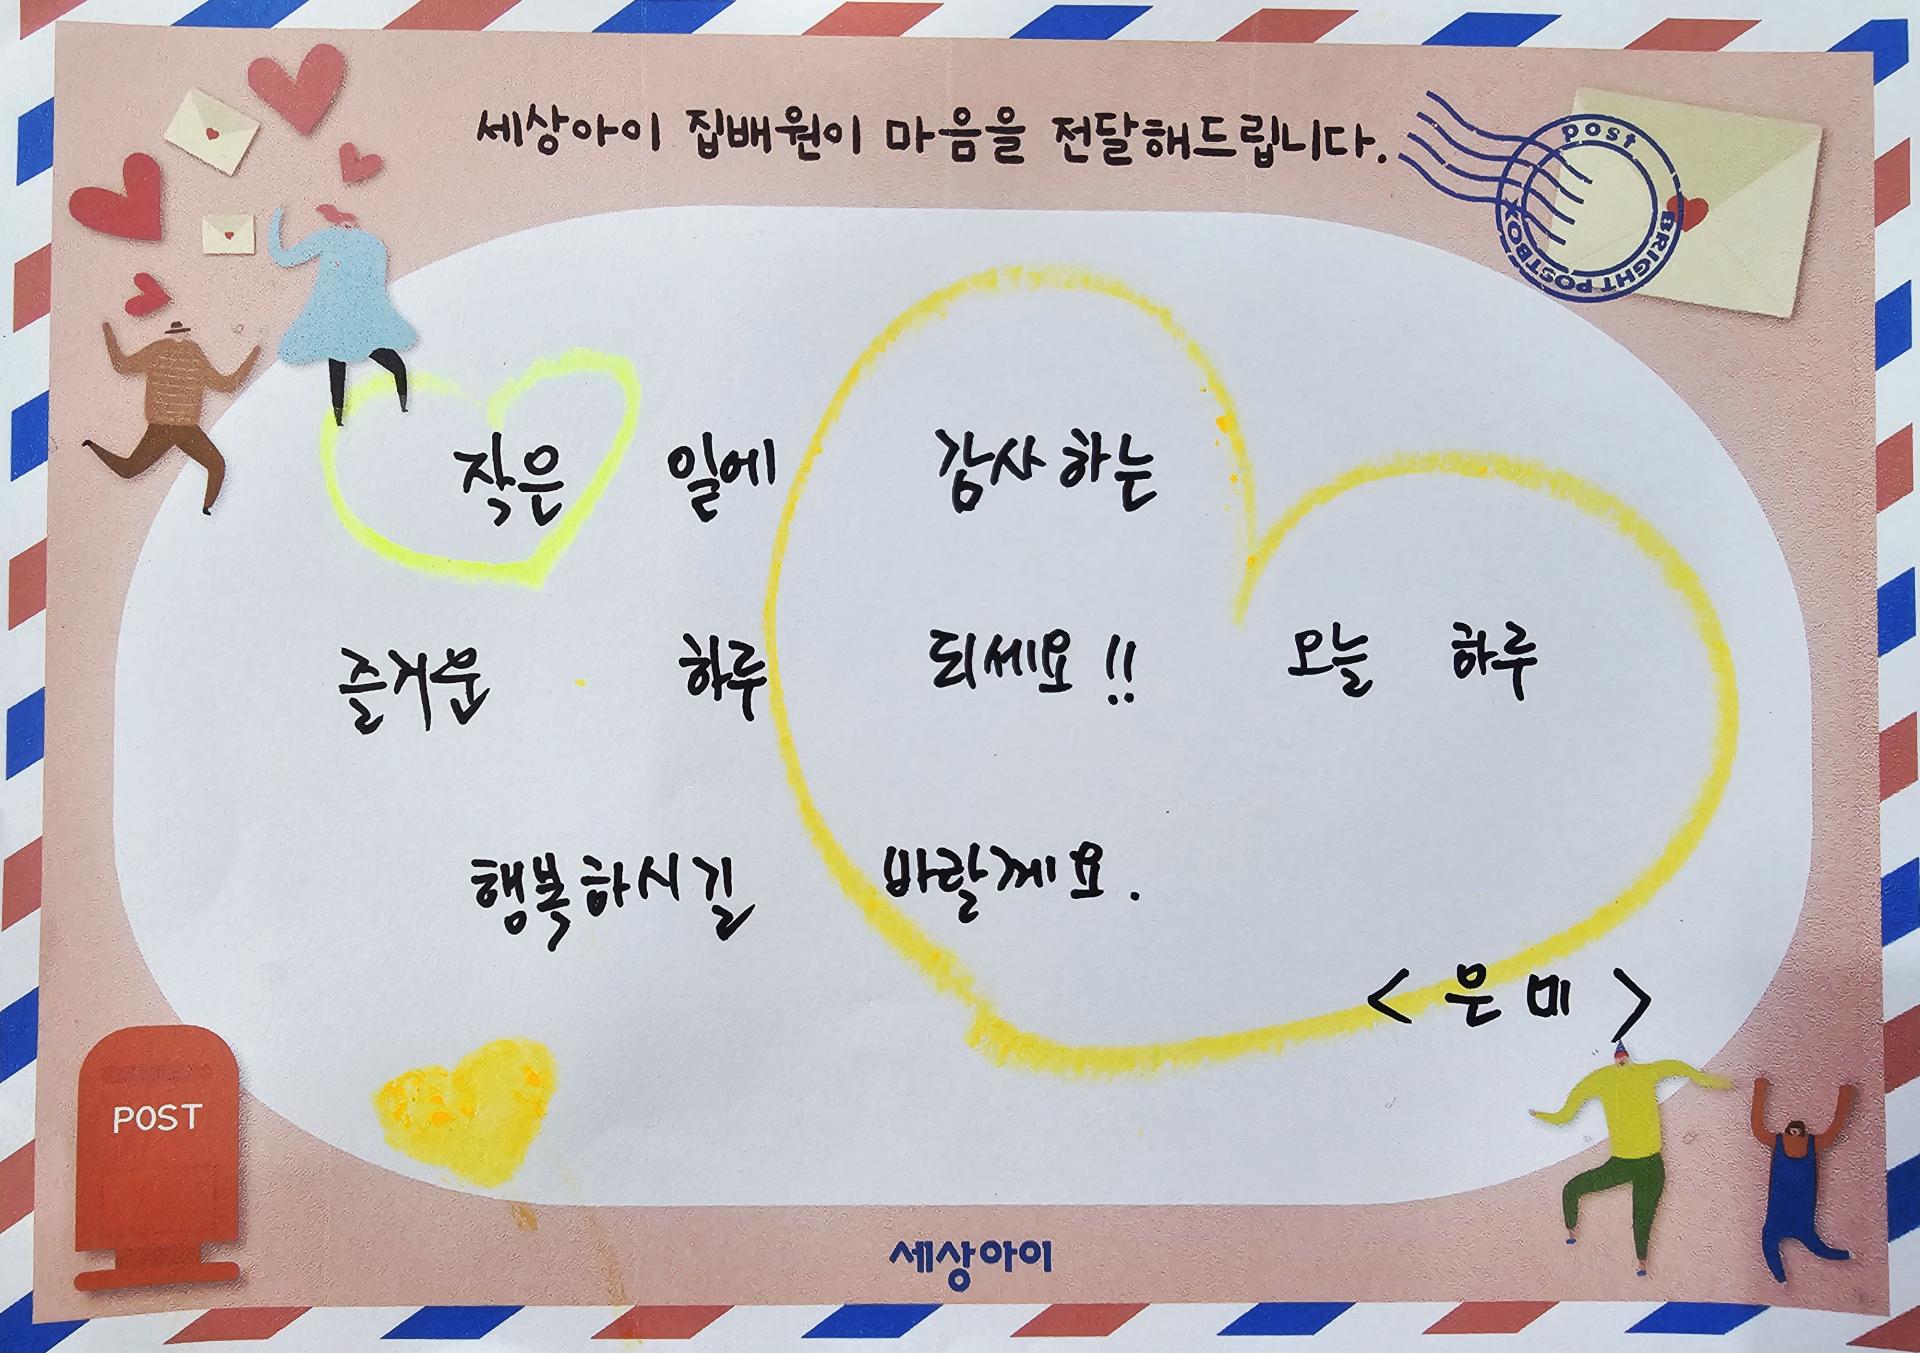 세상아이 집배원이 마음을 전달해드립니다.
post
BRIGHT POSTBOX
작은 일에 감사하는
즐거운 하루 되세요!! 오늘 하루
행복하시길 바랄께요.
< 은미 >
POST
세상아이